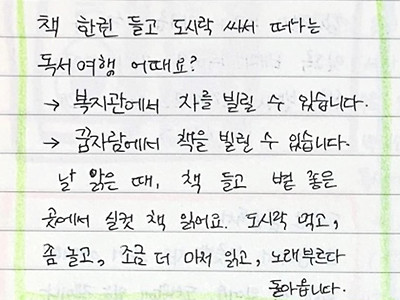 책 한권 들고 도시락 싸서 떠나는
독서여행 어때요?
→ 복지관에서 차를 빌릴 수 있습니다.
→ 꿈자람에서 책을 빌릴 수 있습니다.
날 맑은 때, 책 들고 볕 좋은
곳에서 실컷 책 읽어요. 도시락 먹고,
좀 놀고, 조금 더 마저 읽고, 노래부르다
돌아옵니다.